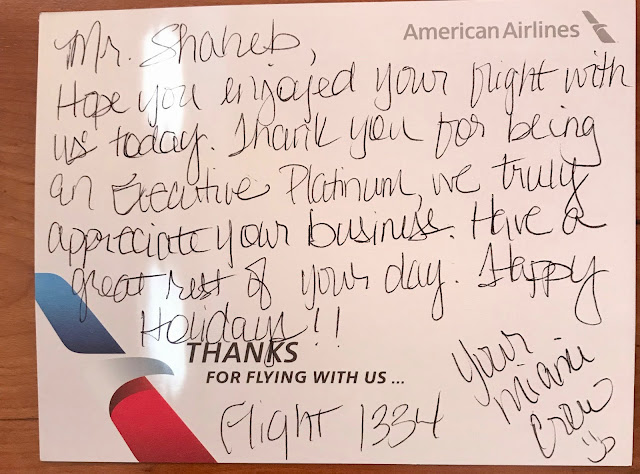 American Airlines
Mr. Shaheb,
Hope you enjoyed your flight with
us today. Thank you for being
an Executive Platinum, we truly
appreciate your business. Have a
great rest of your day. Happy
Holidays!!
THANKS
FOR FLYING WITH US ...
Flight 1334
Your
Miami
Crew